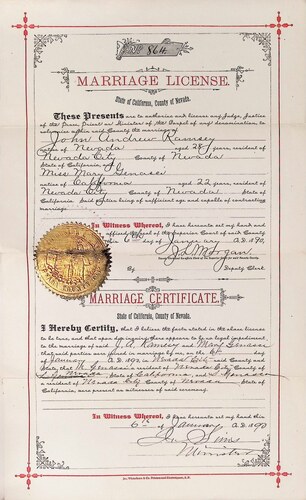 No. 864
MARRIAGE LICENSE.
State of California, County of Nevada.
These Presents are to authorize and license any Judge, Justice
of the Peace, Priest or Minister of the Gospel of any denomination, to
solemnize within said County the marriage of
John Andrew Ramsey
native of Nevada aged 28 years, resident of
Nevada City County of Nevada
State of California, and
Miss Mary
native of California aged 22 years, resident of
Nevada City County of Nevada State of
California. Said parties being of sufficient age and capable of contracting
marriage.
In Witness Whereof, I have hereunto set my hand and
affixed the Seal of the Superior Court of said County
this 6th day of January A.D. 189
Morgan
Deputy Clerk.
MARRIAGE CERTIFICATE.
State of California, County of Nevada.
I Hereby Certify, that I believe the facts stated in the above license
to be true, and that upon due inquiry there appears to be no legal impediment
to the marriage of said J. A. Ramsey and Mary
that said parties were joined in marriage by me, on the 6th day
of January A.D. 189 in Nevada City said County and
State, that a resident of Nevada City County of
Nevada, State of California, and
a resident of Nevada City County of Nevada State of
California, were present as witnesses of said ceremony.
In Witness Whereof, I have hereunto set my hand this
6th day of January A.D. 189
Sims
Minister